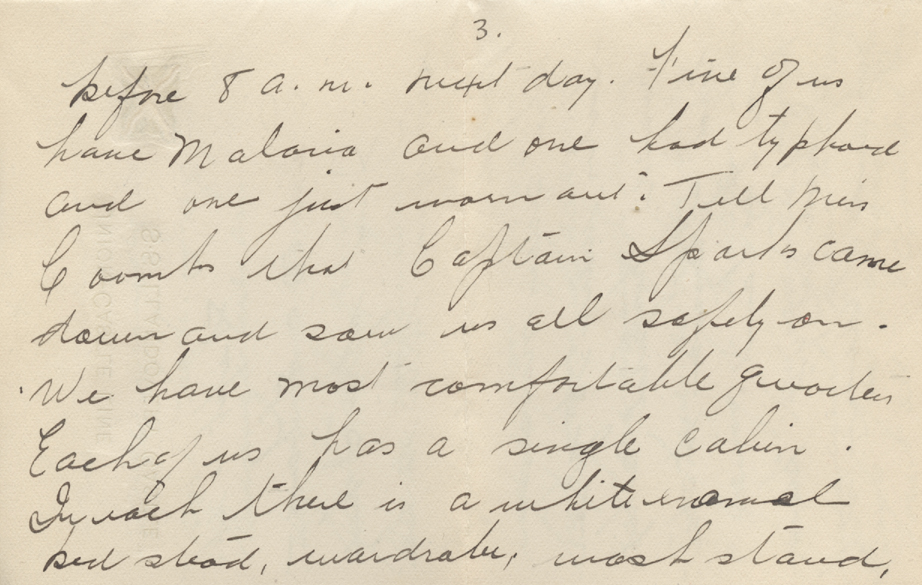 3.
before 8 a.m. next day. Five of us
have Malaria and one had typhoid
and one just worn out. Tell Miss
Coombs that Captain Sparks came
down and saw us all safely on.
We have most comfortable quarters
Each of us has a single cabin.
In each there is a white enamel
bed stead, wardrobe, wash stand,